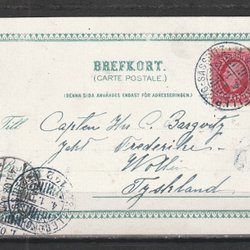 BREFKORT.
(CARTE POSTALE.)
(DENNA SIDA ANVÄNDES ENDAST FÖR ADRESSERINGEN.)
Till Capten Hrr C. Bargvitz
Jacht Frederike
Wollin
Tyskland